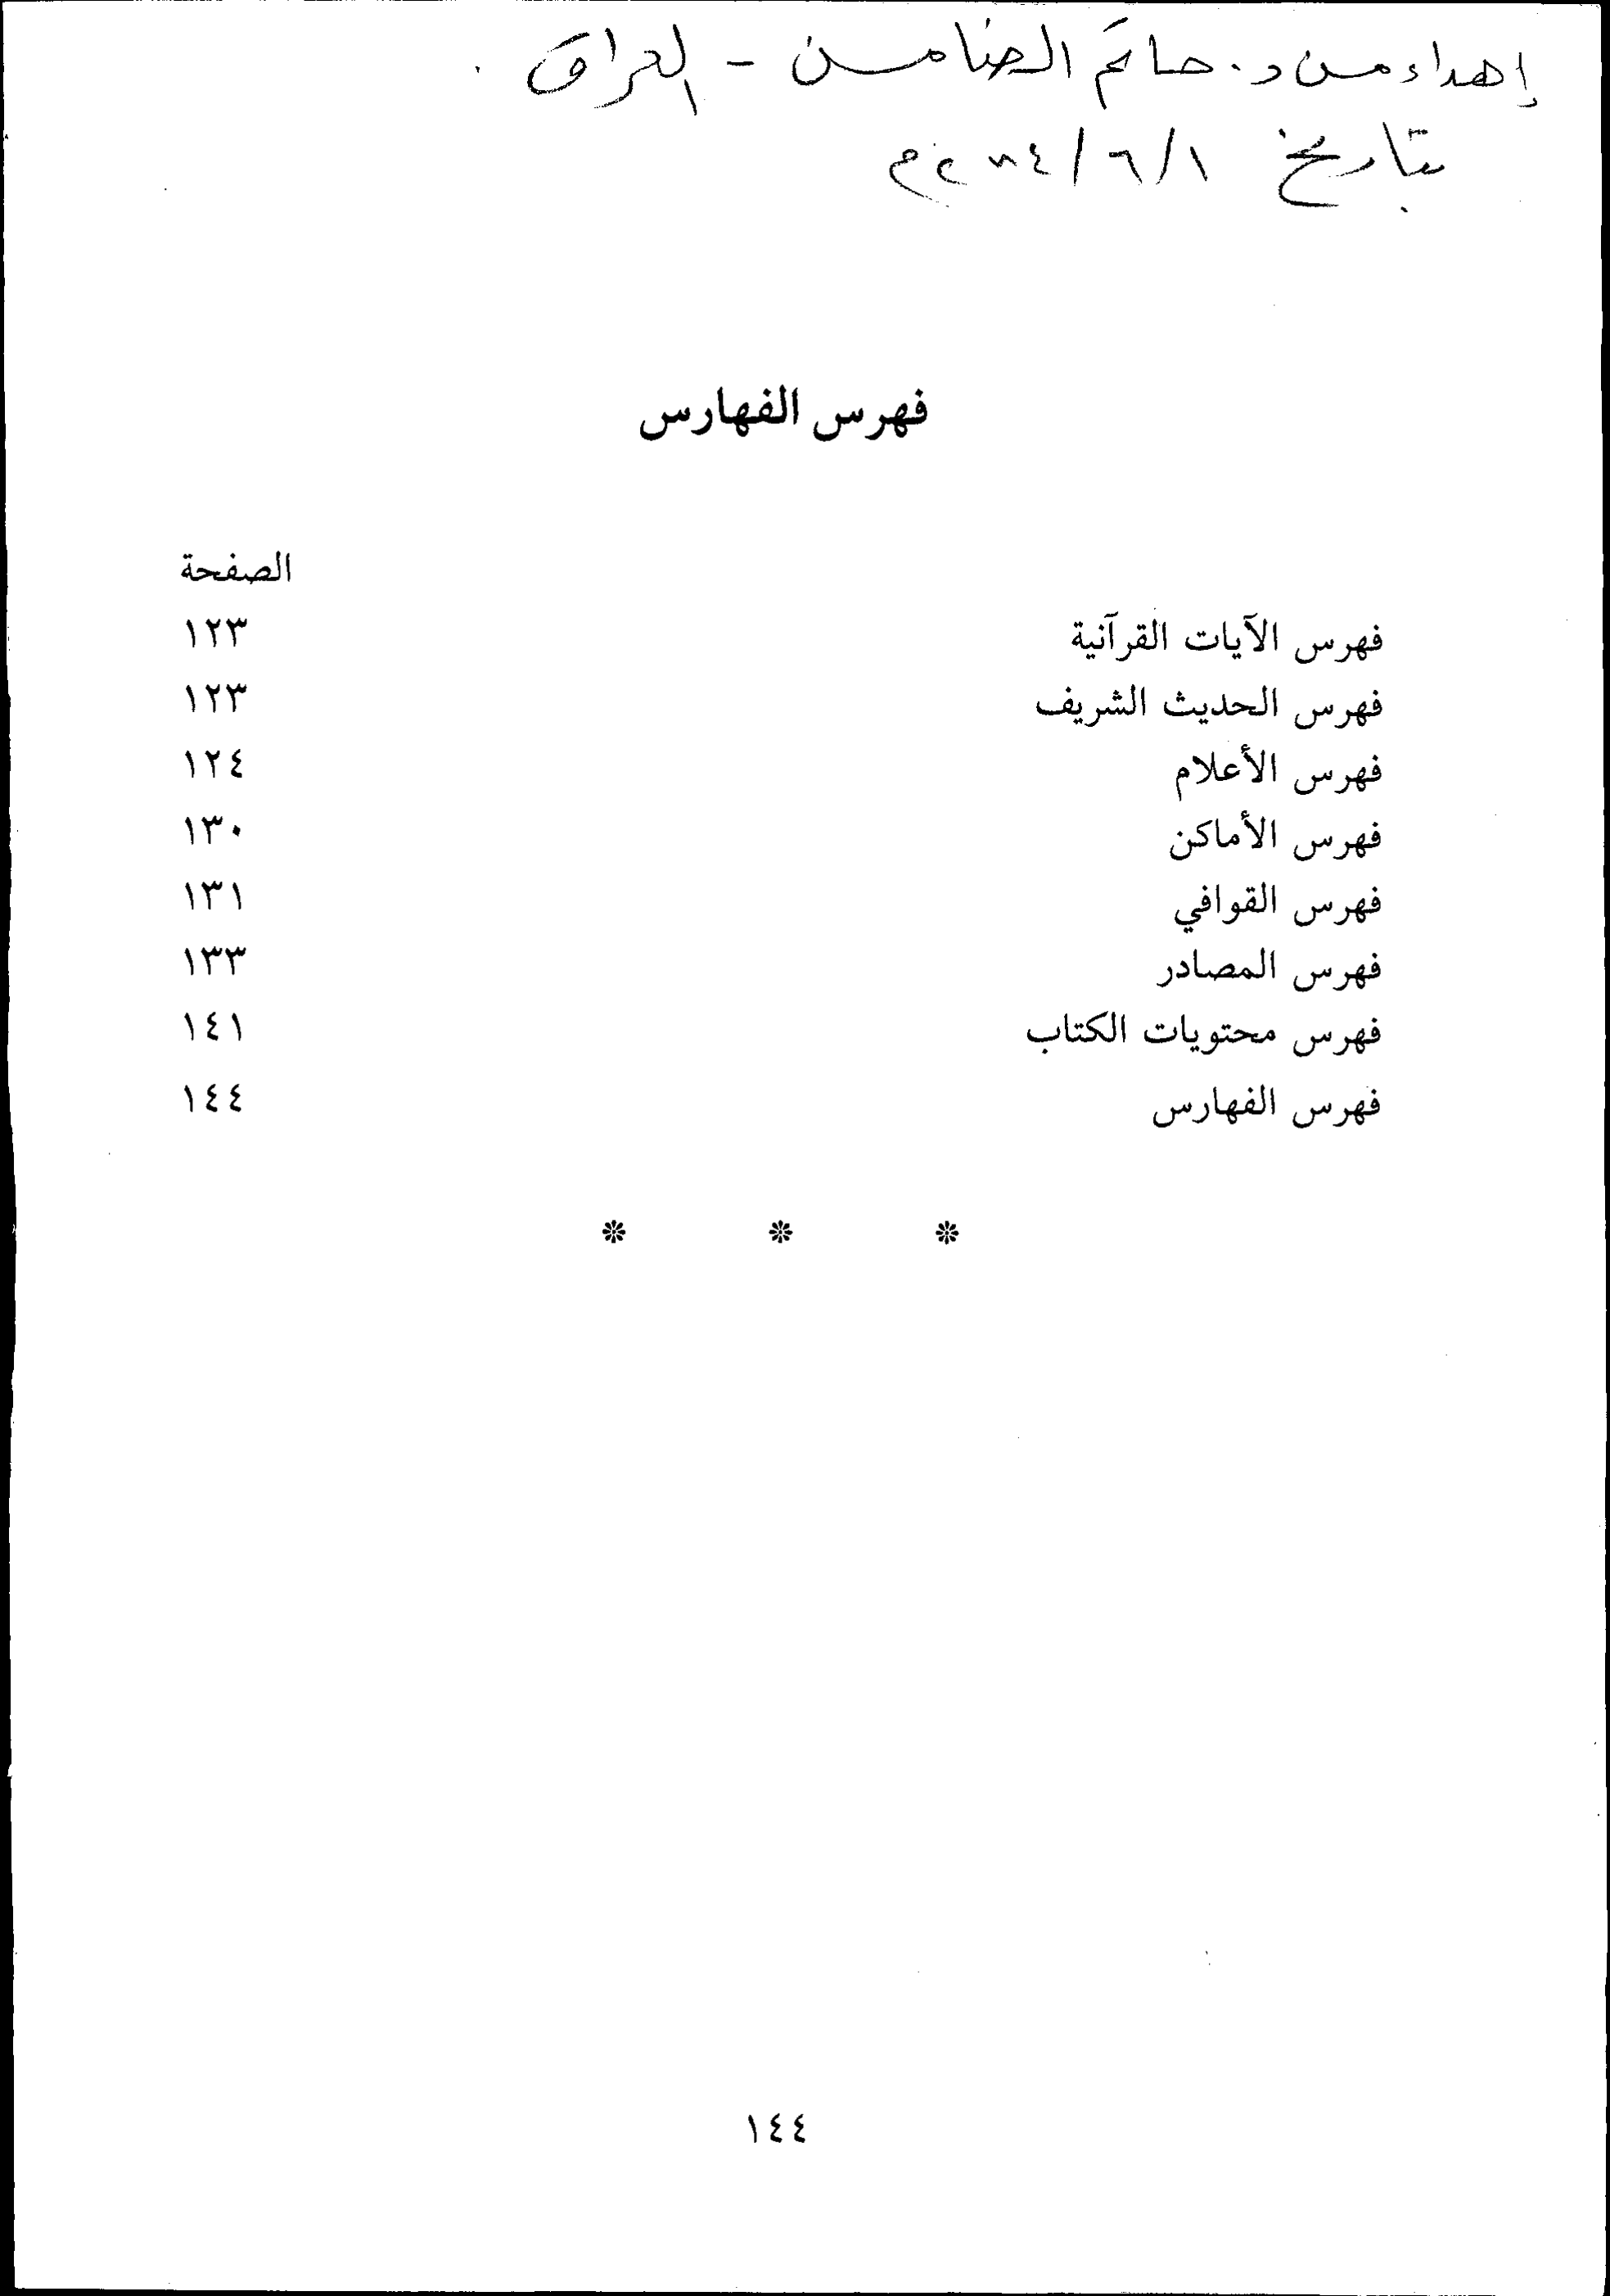 إهداء من د. حاتم الضامن - العراق.
بتاريخ ١/٦/٢٠٠٤م
فهرس الفهارس
الصفحة
فهرس الآيات القرآنية ١٢٣
فهرس الحديث الشريف ١٢٣
فهرس الأعلام ١٢٤
فهرس الأماكن ١٣٠
فهرس القوافي ١٣١
فهرس المصادر ١٣٣
فهرس محتويات الكتاب ١٤١
فهرس الفهارس ١٤٤
* * *
١٤٤